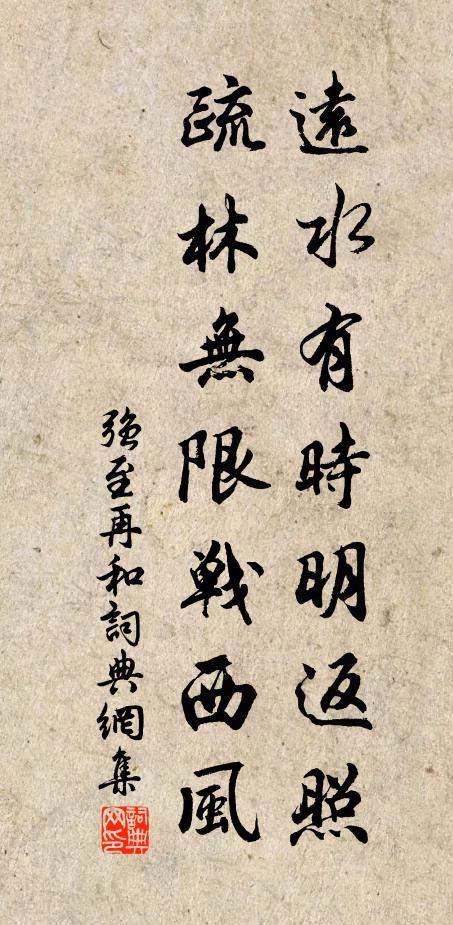 遠水有時明返照
疏林無限戰西風
強至再和詞典網集
詞典網印